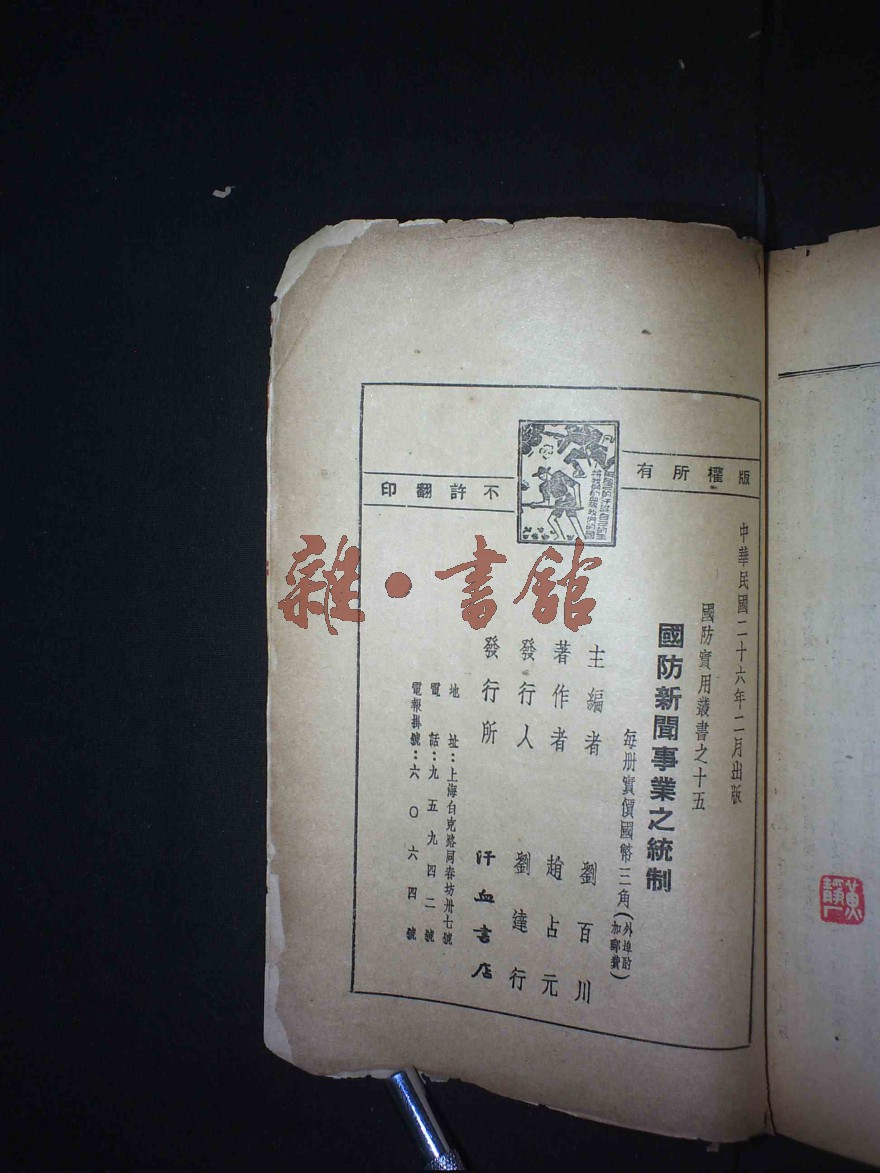 版權所有
不許翻印
中華民國二十六年二月出版
國防實用叢書之十五
國防新聞事業之統制
每冊實價國幣三角(外埠酌加郵費)
主編者 劉百川
著作者 趙占元
發行人 劉達行
發行所 汗血書店
地址:上海白克路同春坊卅七號
電話:九五九四二號
電報掛號:六〇六四號
雜·書館